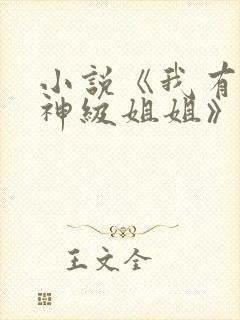 小说《我有
神级姐姐》
王文全